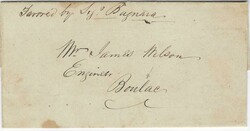 Favored by Sigr Bagnara
Mr James Wilson
Engineer
Boulac